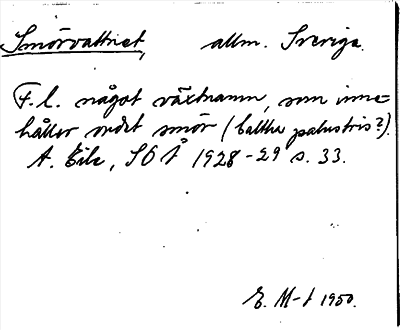 Smörvattnet, allm. Sverige.
F. l. något växtnamn, som inne-
håller ordet smör (Caltha palustris?).
A. Eile, SOÅ 1928-29 s. 33.
E. M-t 1950.